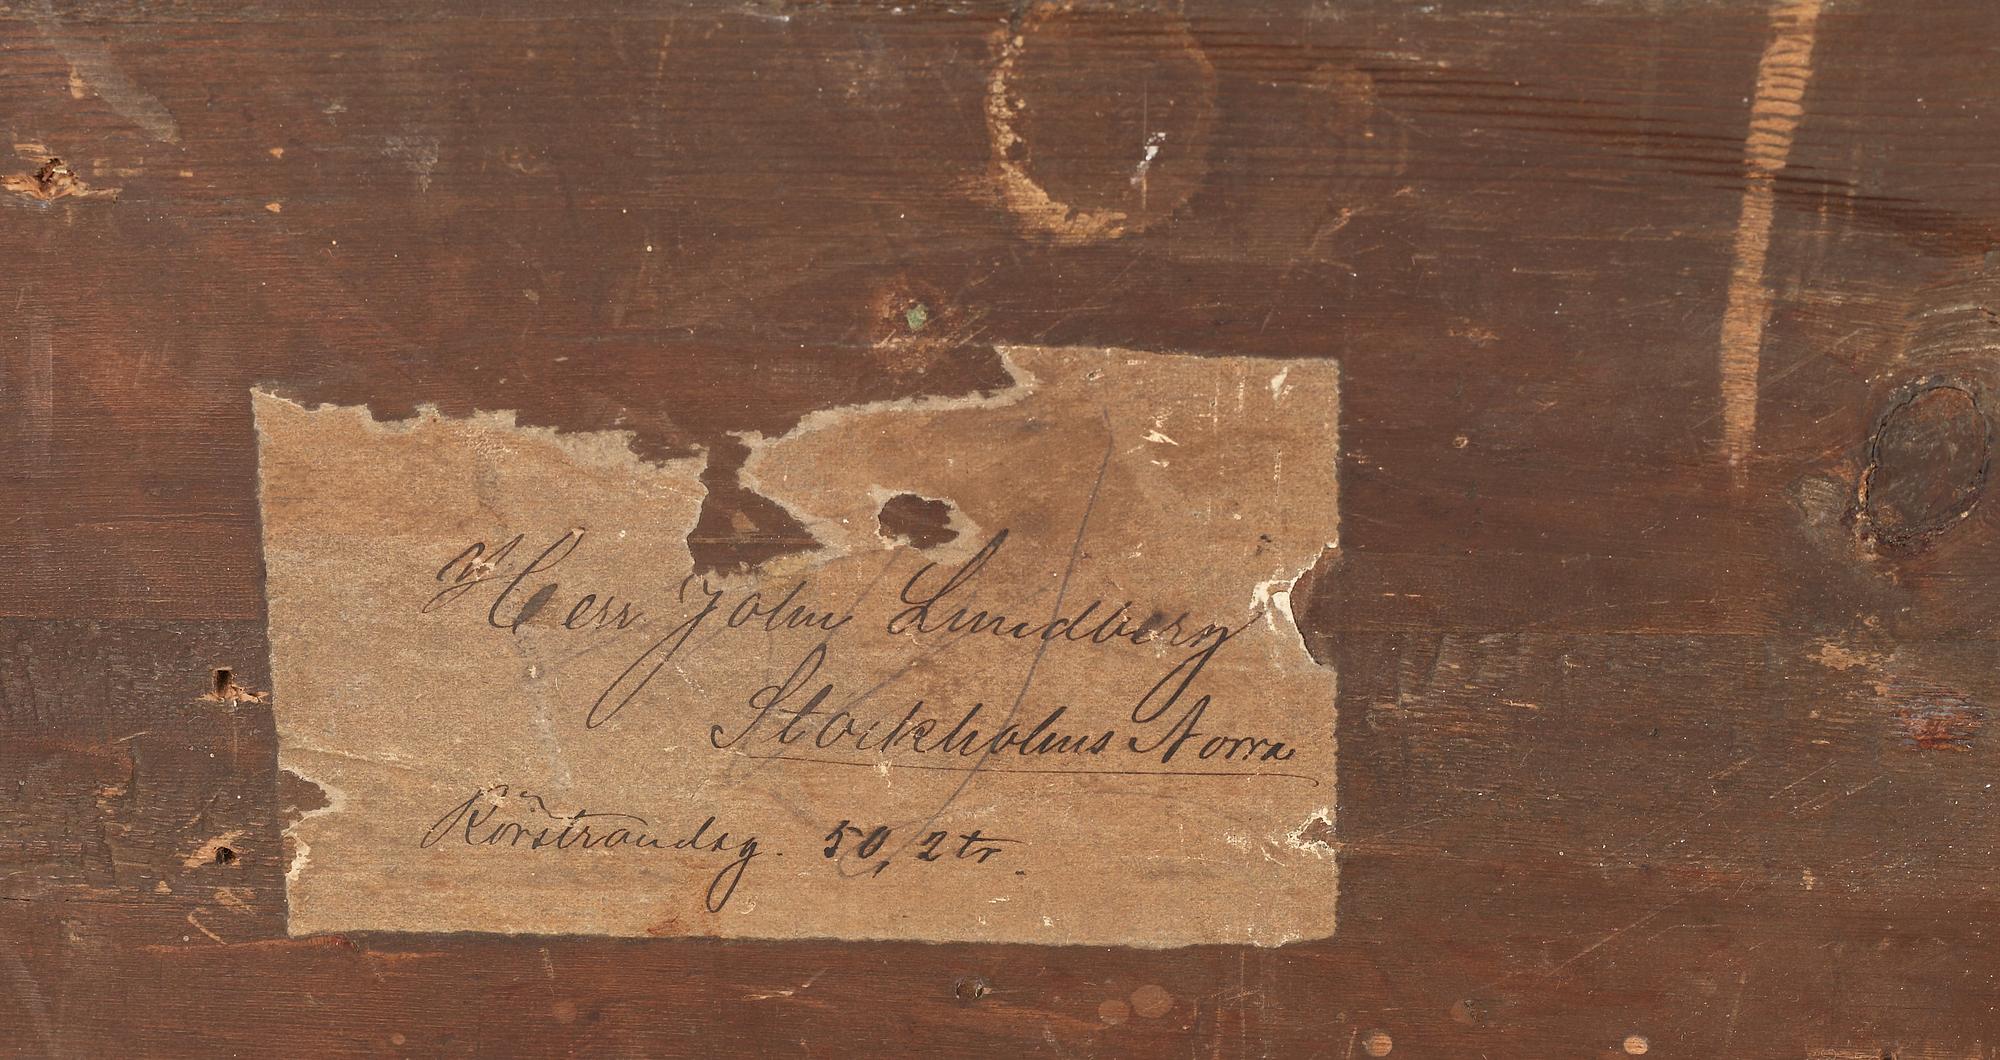 Herr John Lundberg
Stockholms Norra
Rörstrandsg. 50, 2 tr